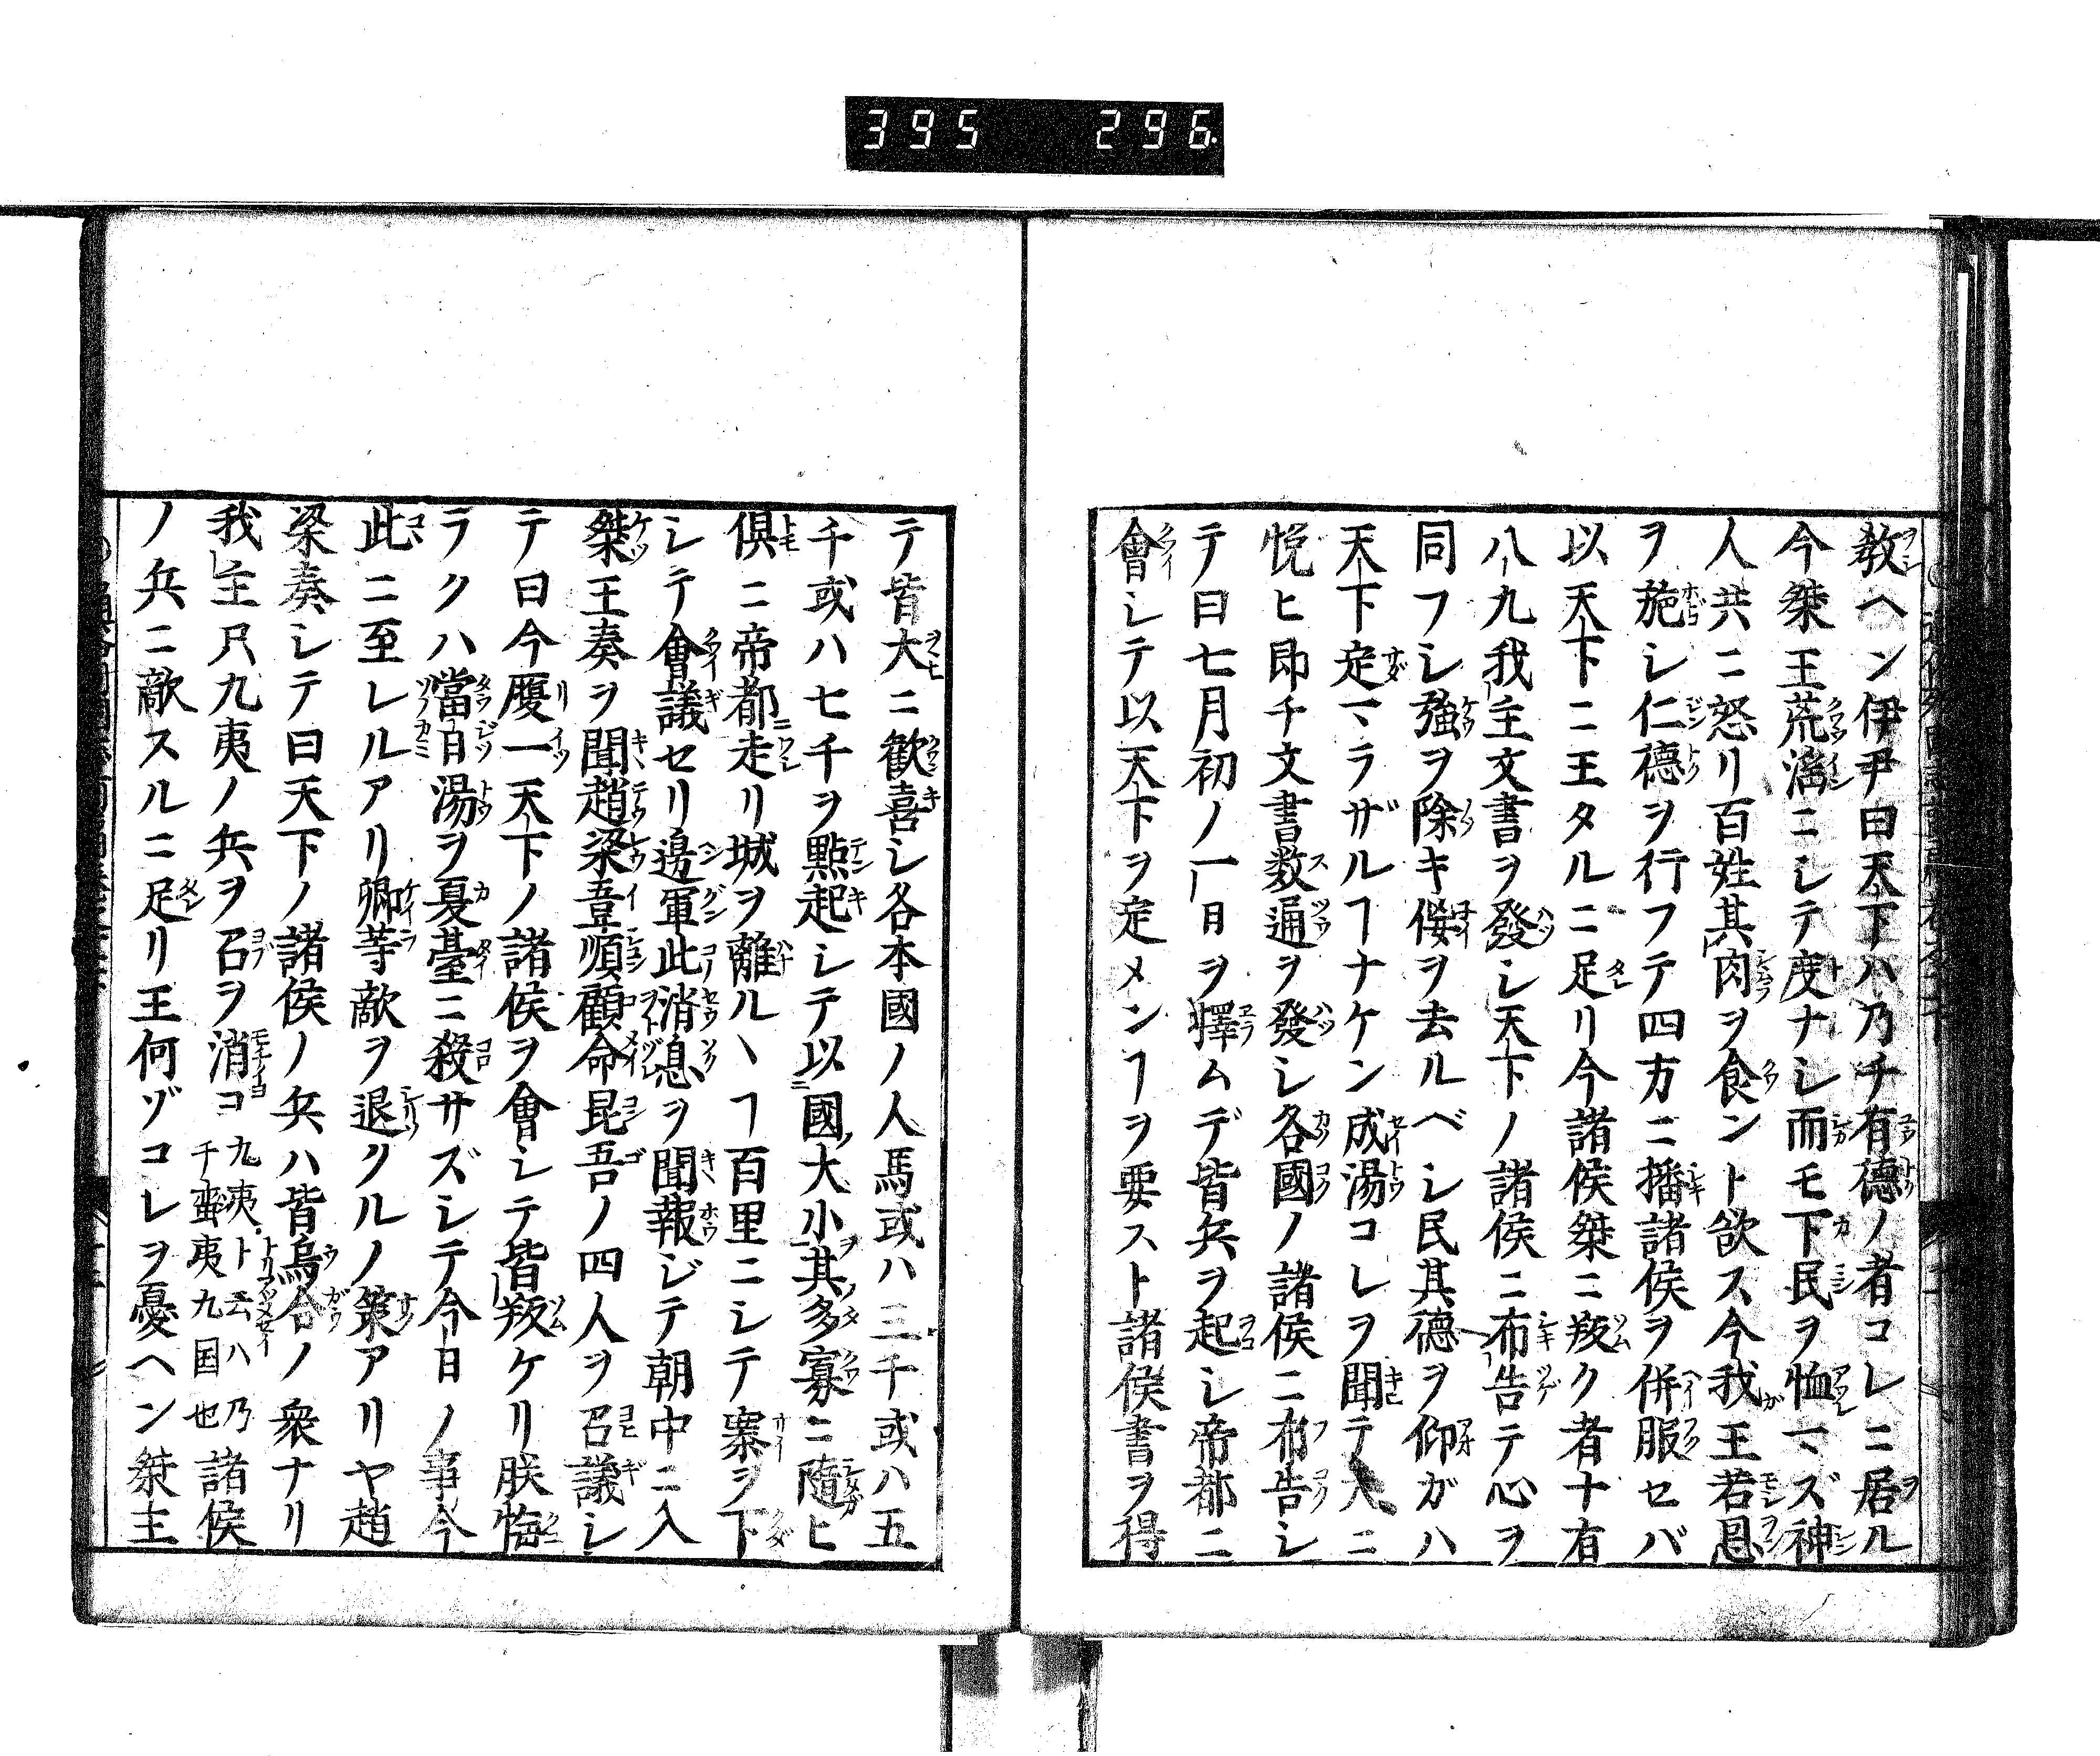 395 296
教ヘン伊尹曰天下ハ乃チ有德ノ者コレニ居ル
今桀王荒滛ニシテ度ナシ而モ下民ヲ恤マズ神
人共ニ怒リ百姓其肉ヲ食ント欲ス今我王若恩
ヲ施シ仁德ヲ行フテ四方ニ播諸侯ヲ併服セバ
以天下ニ王タルニ足リ今諸侯桀ニ叛ク者十有
八九我主文書ヲ發シ天下ノ諸侯ニ布告テ心ヲ
同フシ強ヲ除キ侫ヲ去ルベシ民其德ヲ仰ガハ
天下定マラザルヿナケン成湯コレヲ聞テ大ニ
悦ヒ即チ文書数通ヲ發シ各國ノ諸侯ニ布告シ
テ曰七月初ノ一日ヲ擇ムデ皆兵ヲ起シ帝都ニ
會シテ以天下ヲ定メンヿヲ要スト諸侯書ヲ得
テ皆大ニ歓喜シ各本國ノ人馬或ハ三千或ハ五
千或ハ七千ヲ點起シテ以國大小其多寡ニ随ヒ
倶ニ帝都走リ城ヲ離ルヽヿ百里ニシテ寨ヲ下
シテ會議セリ邊軍此消息ヲ聞報ジテ朝中ニ入
桀王奏ヲ聞趙梁壴順顧命昆吾ノ四人ヲ召議シ
テ曰今履一天下ノ諸侯ヲ會シテ皆叛ケリ朕悔
ラクハ當日湯ヲ夏臺ニ殺サズシテ今日ノ事今
此ニ至レルアリ卿等敵ヲ退クルノ策アリヤ趙
梁奏シテ曰天下ノ諸侯ノ兵ハ皆烏合ノ衆ナリ
我主只九夷ノ兵ヲ召ヲ消ヨ九夷ト云ハ乃千蛮夷九国也諸侯
ノ兵ニ敵スルニ足リ王何ゾコレヲ憂ヘン桀主